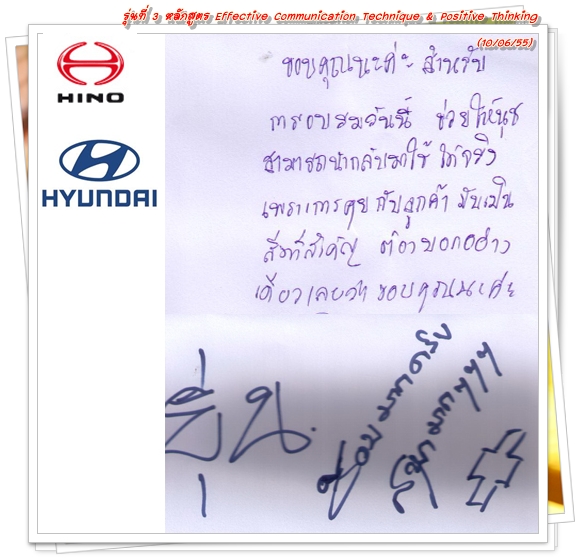 รุ่นที่ 3 หลักสูตร Effective Communication Technique & Positive Thinking
(10/06/55)
HINO
HYUNDAI
ขอบคุณนะค่ะ สำหรับ
การอบรมวันนี้ ช่วยให้นุช
สามารถนำกลับมาใช้ ได้จริง
เพราะการคุยกับลูกค้า มันเป็น
สิ่งที่สำคัญ ต้องบอกอย่าง
เดียวเลยว่า ขอบคุณนะค่ะ
ชอบมากครับ